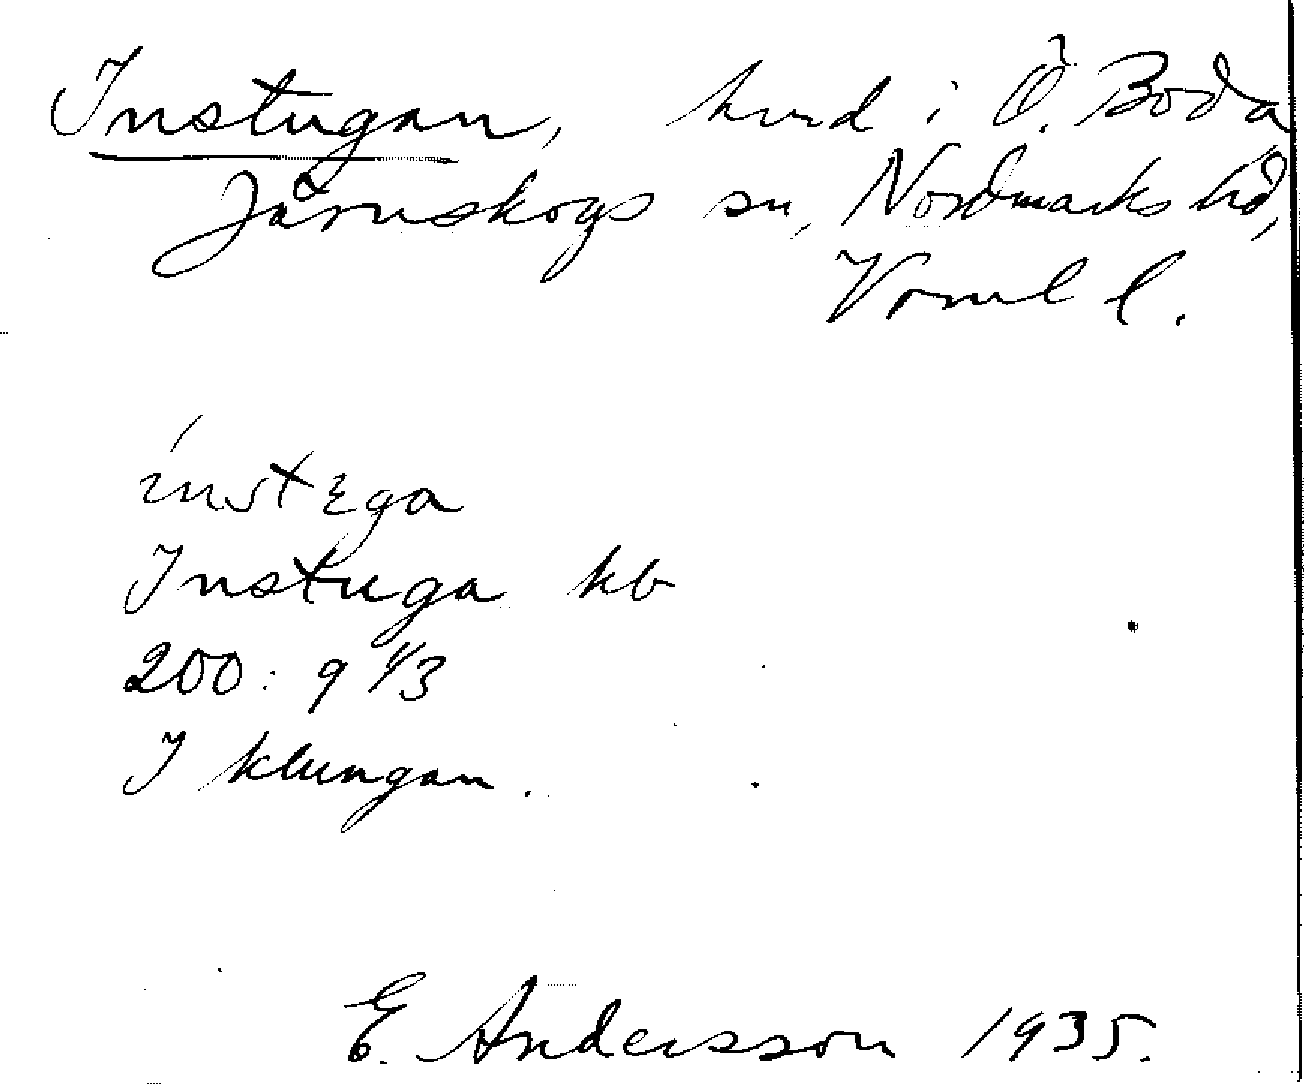 Instugan, hmd i Ö. Boda
Järnskogs sn, Nordmarks hd,
Värml l.
instega
Instuga kb
200: 9 1/3
I klungan.
E. Andersson 1935.